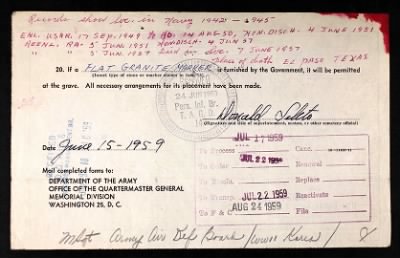 Records show svc. in Navy 1942 - 1945
ENL. USAR. 17 Sep. 1949 HON. DISCH. 4 JUNE 1951
REENL. RA. 5 JUNE 1951 HON DISCH. 4 JUN 57
" " 5 JUN 1957 7 June 1959
place of birth EL PASO TEXAS
20. If a FLAT GRANITE MARKER is furnished by the Government, it will be placed
(Insert type of stone or marker shown in item)
at the grave. All necessary arrangements for its placement have been made.
24 JUN 1959
Pers. Inf. Br.
T. A. G. O.
Donald
(Signature and title of superintendent, sexton, or other cemetery official)
Date June 15-1959
JUL 17 1959
To Process Canc.
JUL 22 1959
To Order Removal
To Replace
To Transp. JUL 22 1959 Reactivate
To F & C AUG 24 1959 File
Mail completed forms to:
DEPARTMENT OF THE ARMY
OFFICE OF THE QUARTERMASTER GENERAL
MEMORIAL DIVISION
WASHINGTON 25, D. C.
MSgt Army Air Def Board